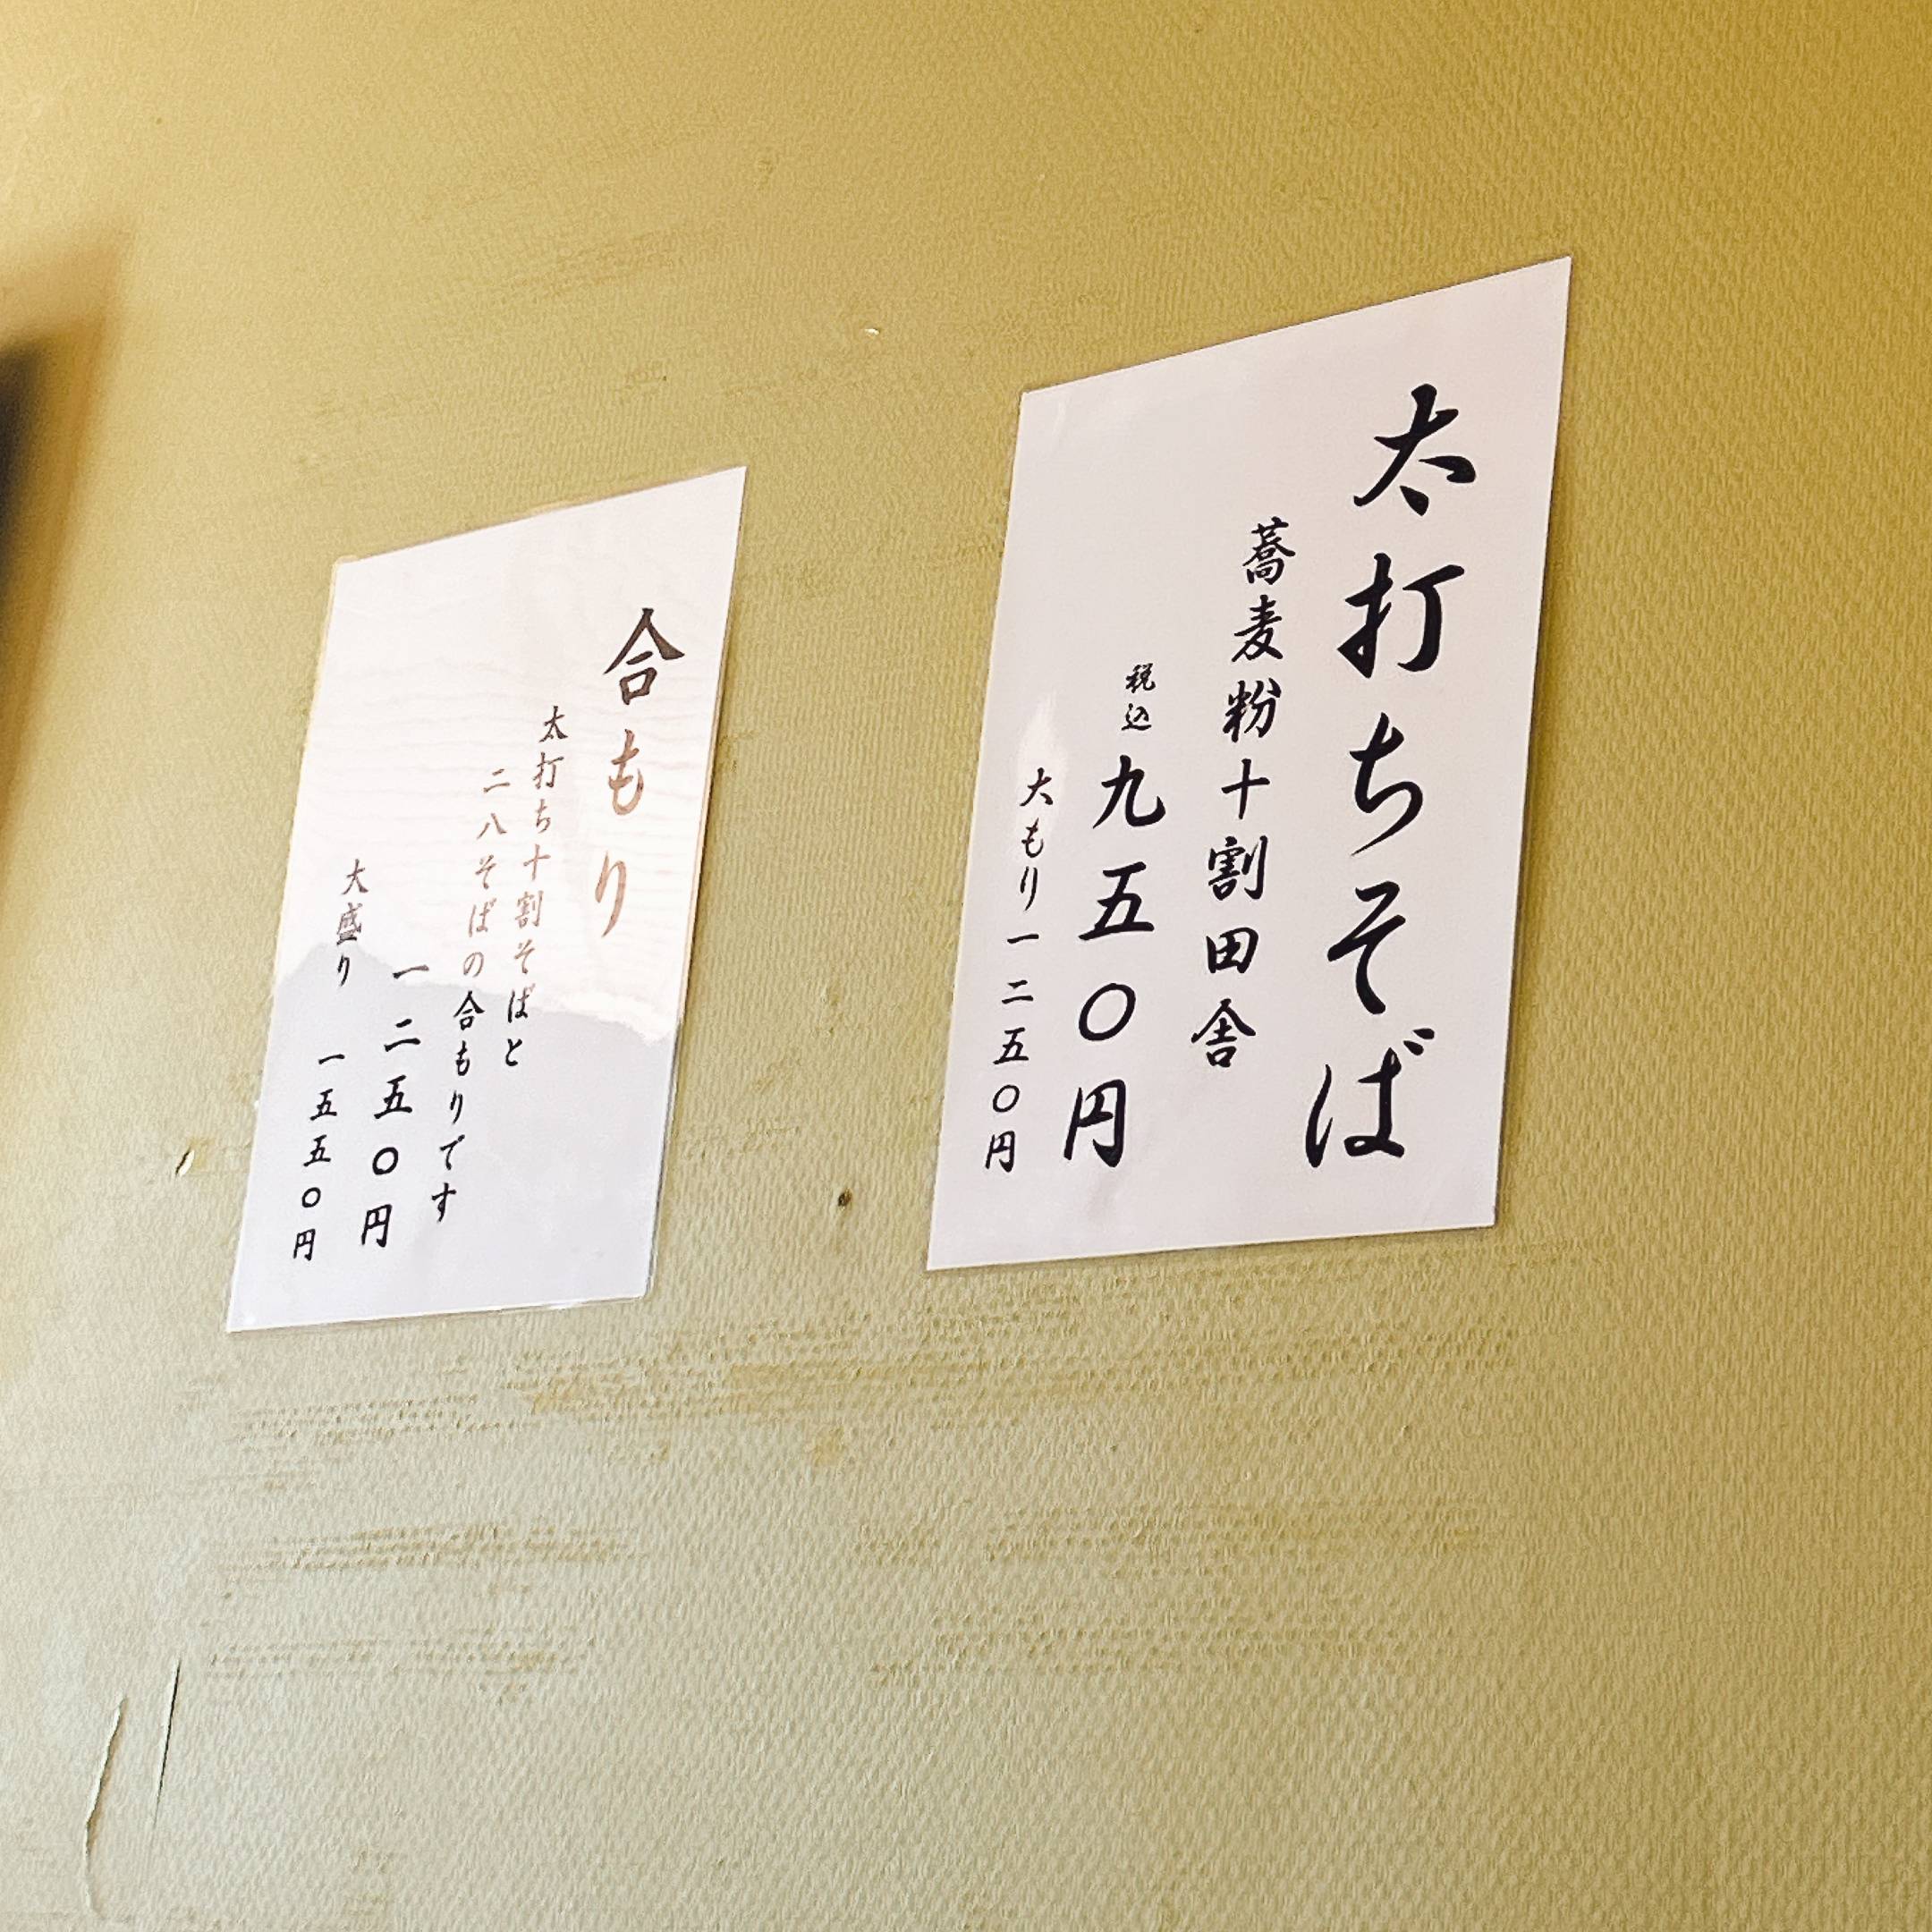 太打ちそば
蕎麦粉十割田舎
税込九五〇円
大もり一二五〇円
合もり
太打ち十割そばと
二八そばの合もりです
一二五〇円
大盛り 一五五〇円